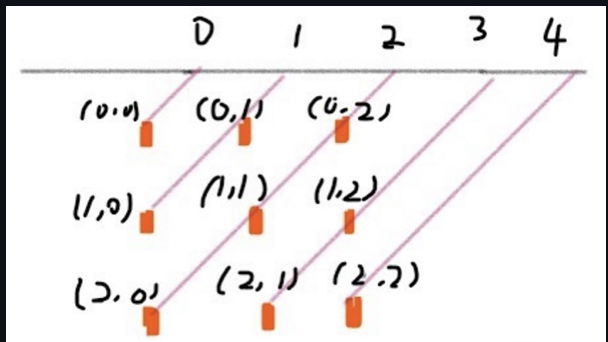 0 1 2 3 4
(0,0) (0,1) (0.2)
(1,0) (1,1) (1,2)
(2,0) (2,1) (2.2)